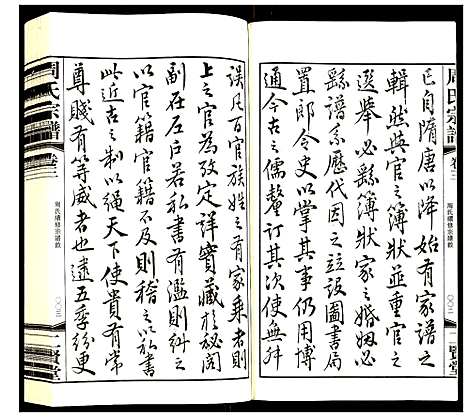 周氏宗譜
卷三
周氏續修宗譜敘
〇〇二
三賢堂
已自隋唐以降始有家譜之
輯然與官之簿狀並重官之
選舉必繇簿狀家之婚姻必
繇譜系歷代因之竝設圖書局
置郎令史以掌其事仍用博
通今古之儒釐訂其次使無舛
誤凡百官族姓之有家乘者則
上之官為攷定詳實藏於秘閣
副在左戶若私書有濫則糾之
以官籍官籍不及則稽之以私書
此近古之制以繩天下使貴有常
尊賤有等威者也逮五季紛更
周氏宗譜
卷三
周氏續修宗譜敘
〇〇三
三賢堂